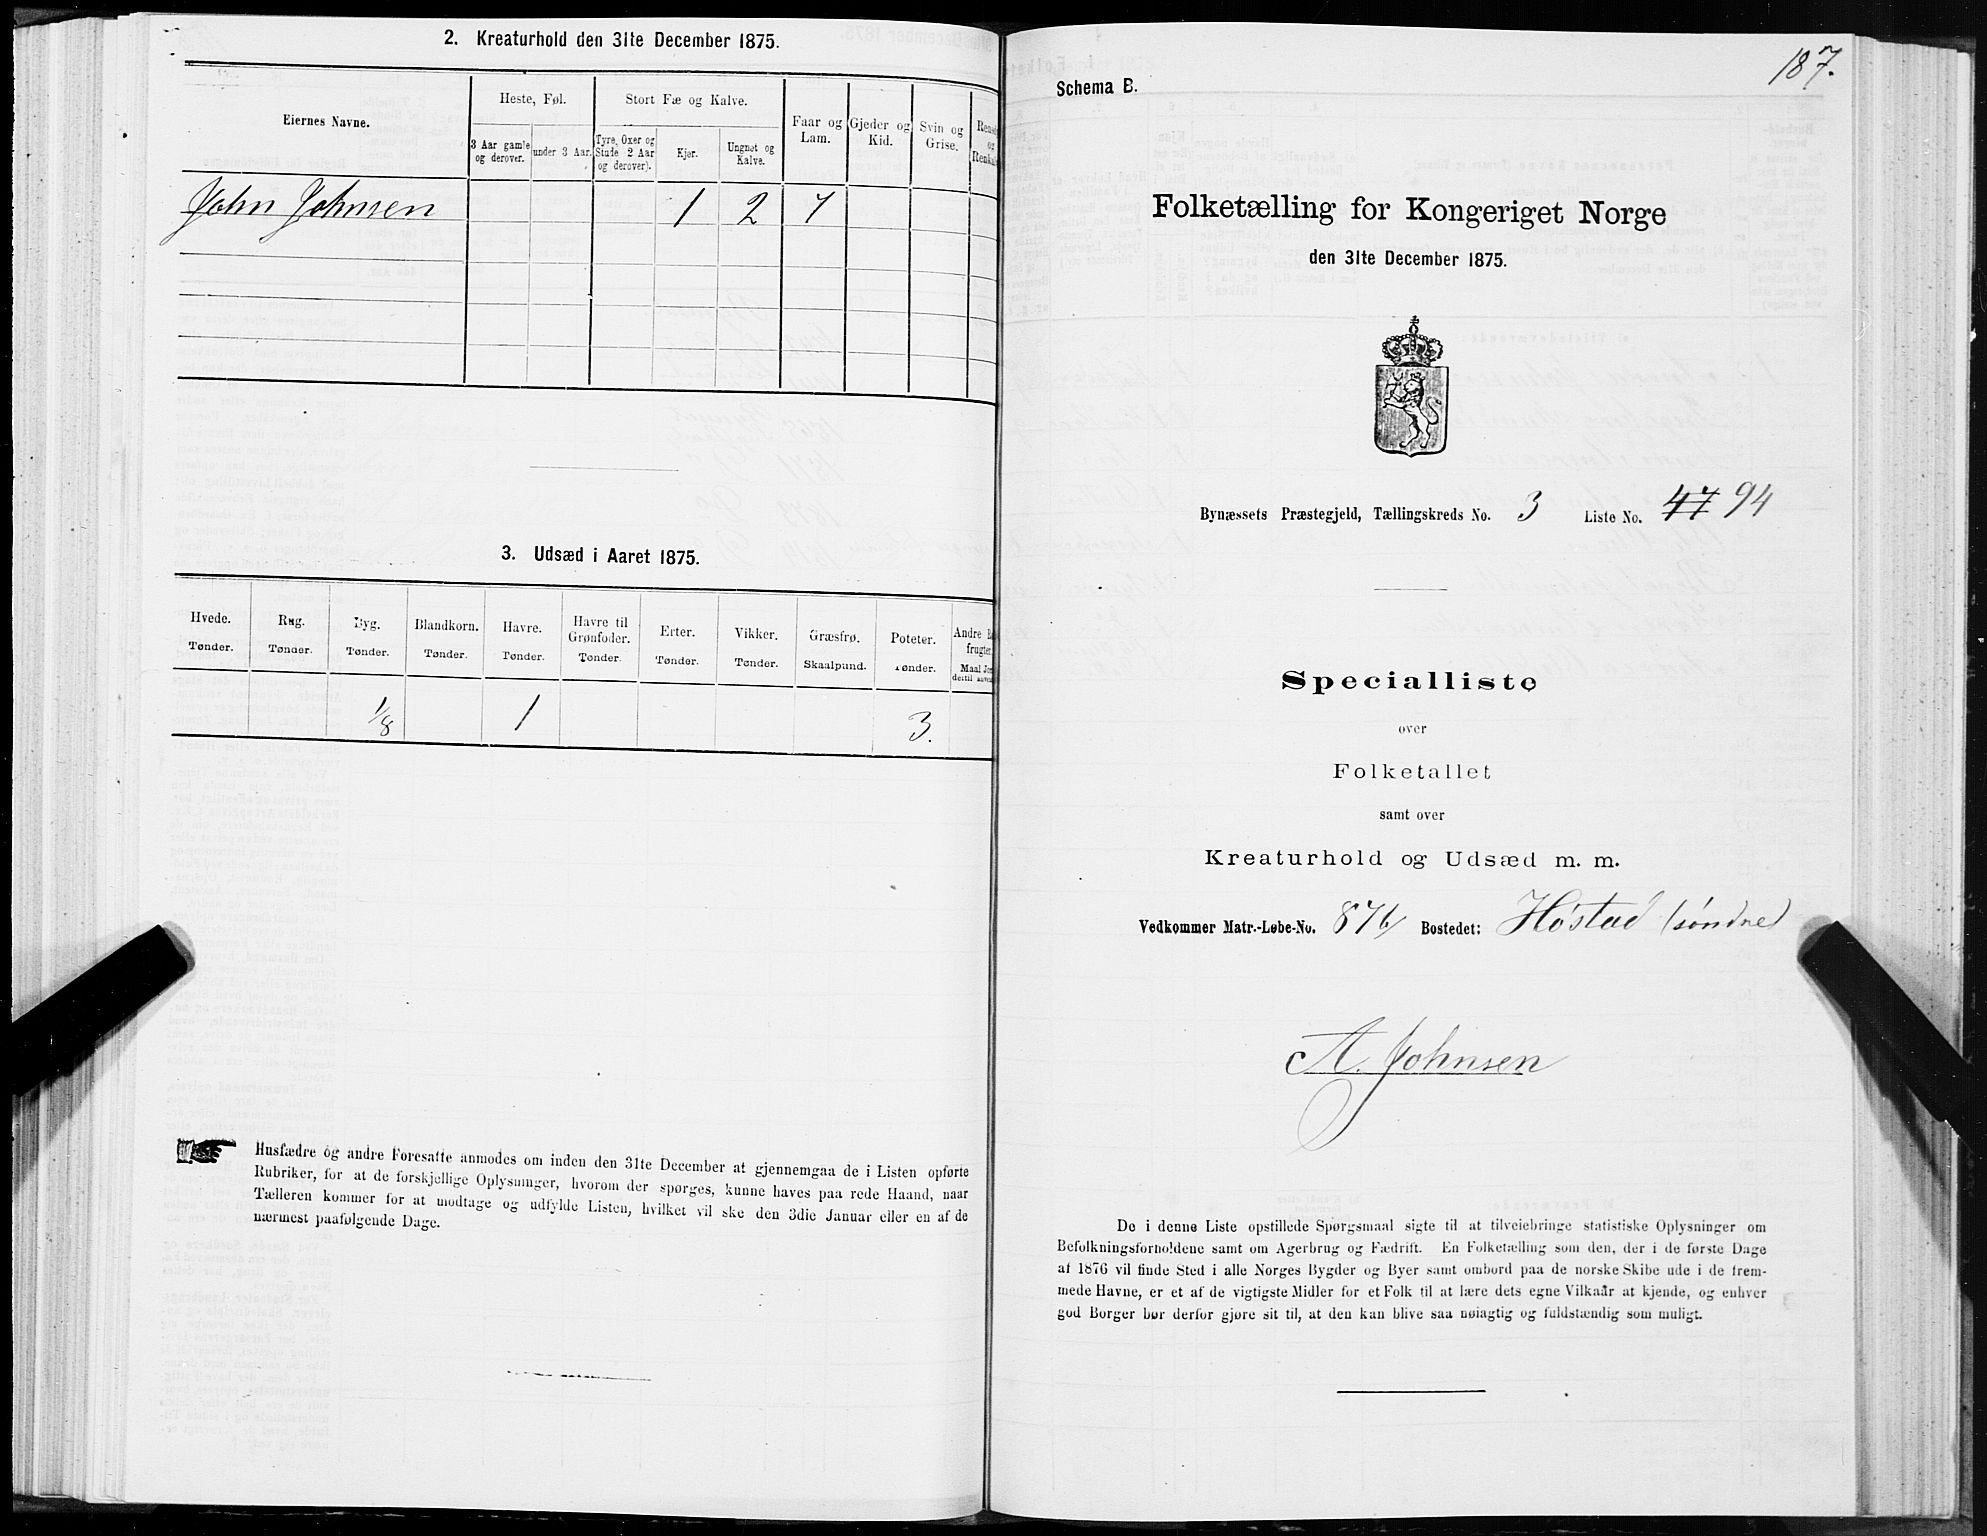 2. Kreaturhold den 31te December 1875.
Eiernes Navne.
Heste, Føl.
Stort Fæ og Kalve.
Faar og Lam.
Gjeder og Kid.
Svin og Grise.
og
3 Aar gamle og derover.
under 3 Aar.
Tyre, Oxer og Stude 2 Aar og derover).
Kjør.
Ungnøt og Kalve.
John Johnsen 1 2 7
3. Udsæd i Aaret 1875.
Hvede. Rug. Byg. Blandkorn. Havre. Havre til Grønfoder. Erter. Vikker. Græsfrø. Poteter. Andre
Tønder. Tønder. Tønder. Tønder. Tønder. Tønder. Tønder. Tønder. Skaalpund. Tønder. Maal
1/8 1 3.
Husfædre og andre Foresatte anmodes om inden den 31te December at gjennemgaa de i Listen opførte
Rubriker, for at de forskjellige Oplysninger, hvorom der spørges, kunne haves paa rede Haand, naar
Tælleren kommer for at modtage og udfylde Listen, hvilket vil ske den 3die Januar eller en af de
nærmest paafølgende Dage.
187.
Schema B.
Folketælling for Kongeriget Norge
den 31te December 1875.
Bynæssets Præstegjeld, Tællingskreds No. 3 Liste No. 47 94
Specialliste
over
Folketallet
samt over
Kreaturhold og Udsæd m. m.
Vedkommer Matr.-Løbe-No. 87b Bostedet: Høstad (søndre)
A. Johnsen
De i denne Liste opstillede Spørgsmaal sigte til at tilveiebringe statistiske Oplysninger om
Befolkningsforholdene samt om Agerbrug og Fædrift. En Folketælling som den, der i de første Dage
af 1876 vil finde Sted i alle Norges Bygder og Byer samt ombord paa de norske Skibe ude i de frem-
mede Havne, er et af de vigtigste Midler for et Folk til at lære dets egne Vilkaar at kjende, og enhver
god Borger bør derfor gjøre sit til, at den kan blive saa nøiagtig og fuldstændig som muligt.